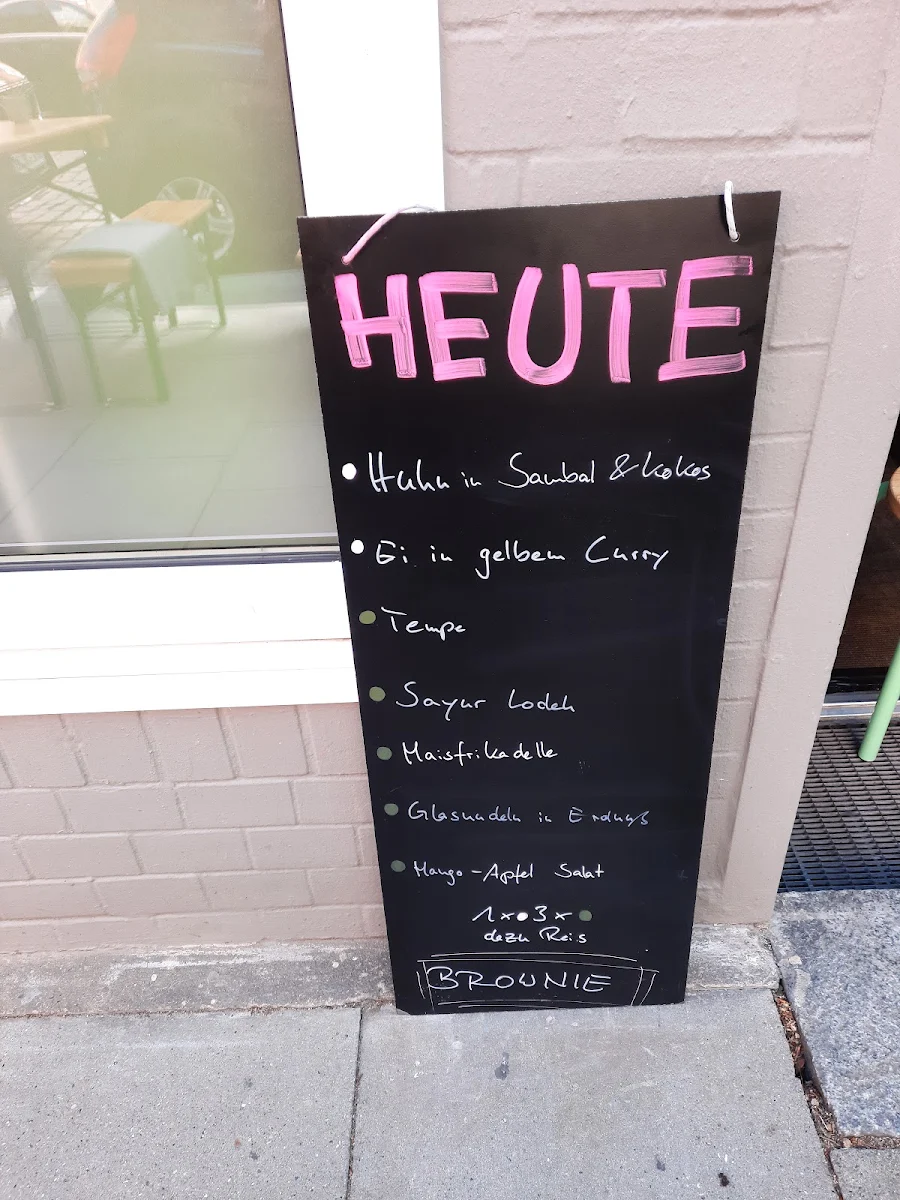 HEUTE
Huhn in Sambal & Kokos
Ei in gelbem Curry
Tempe
Sayur Lodeh
Maisfrikadelle
Glasnudeln in Erdnuß
Mango-Apfel Salat
1x ● 3x ●
dazu Reis
BROWNIE